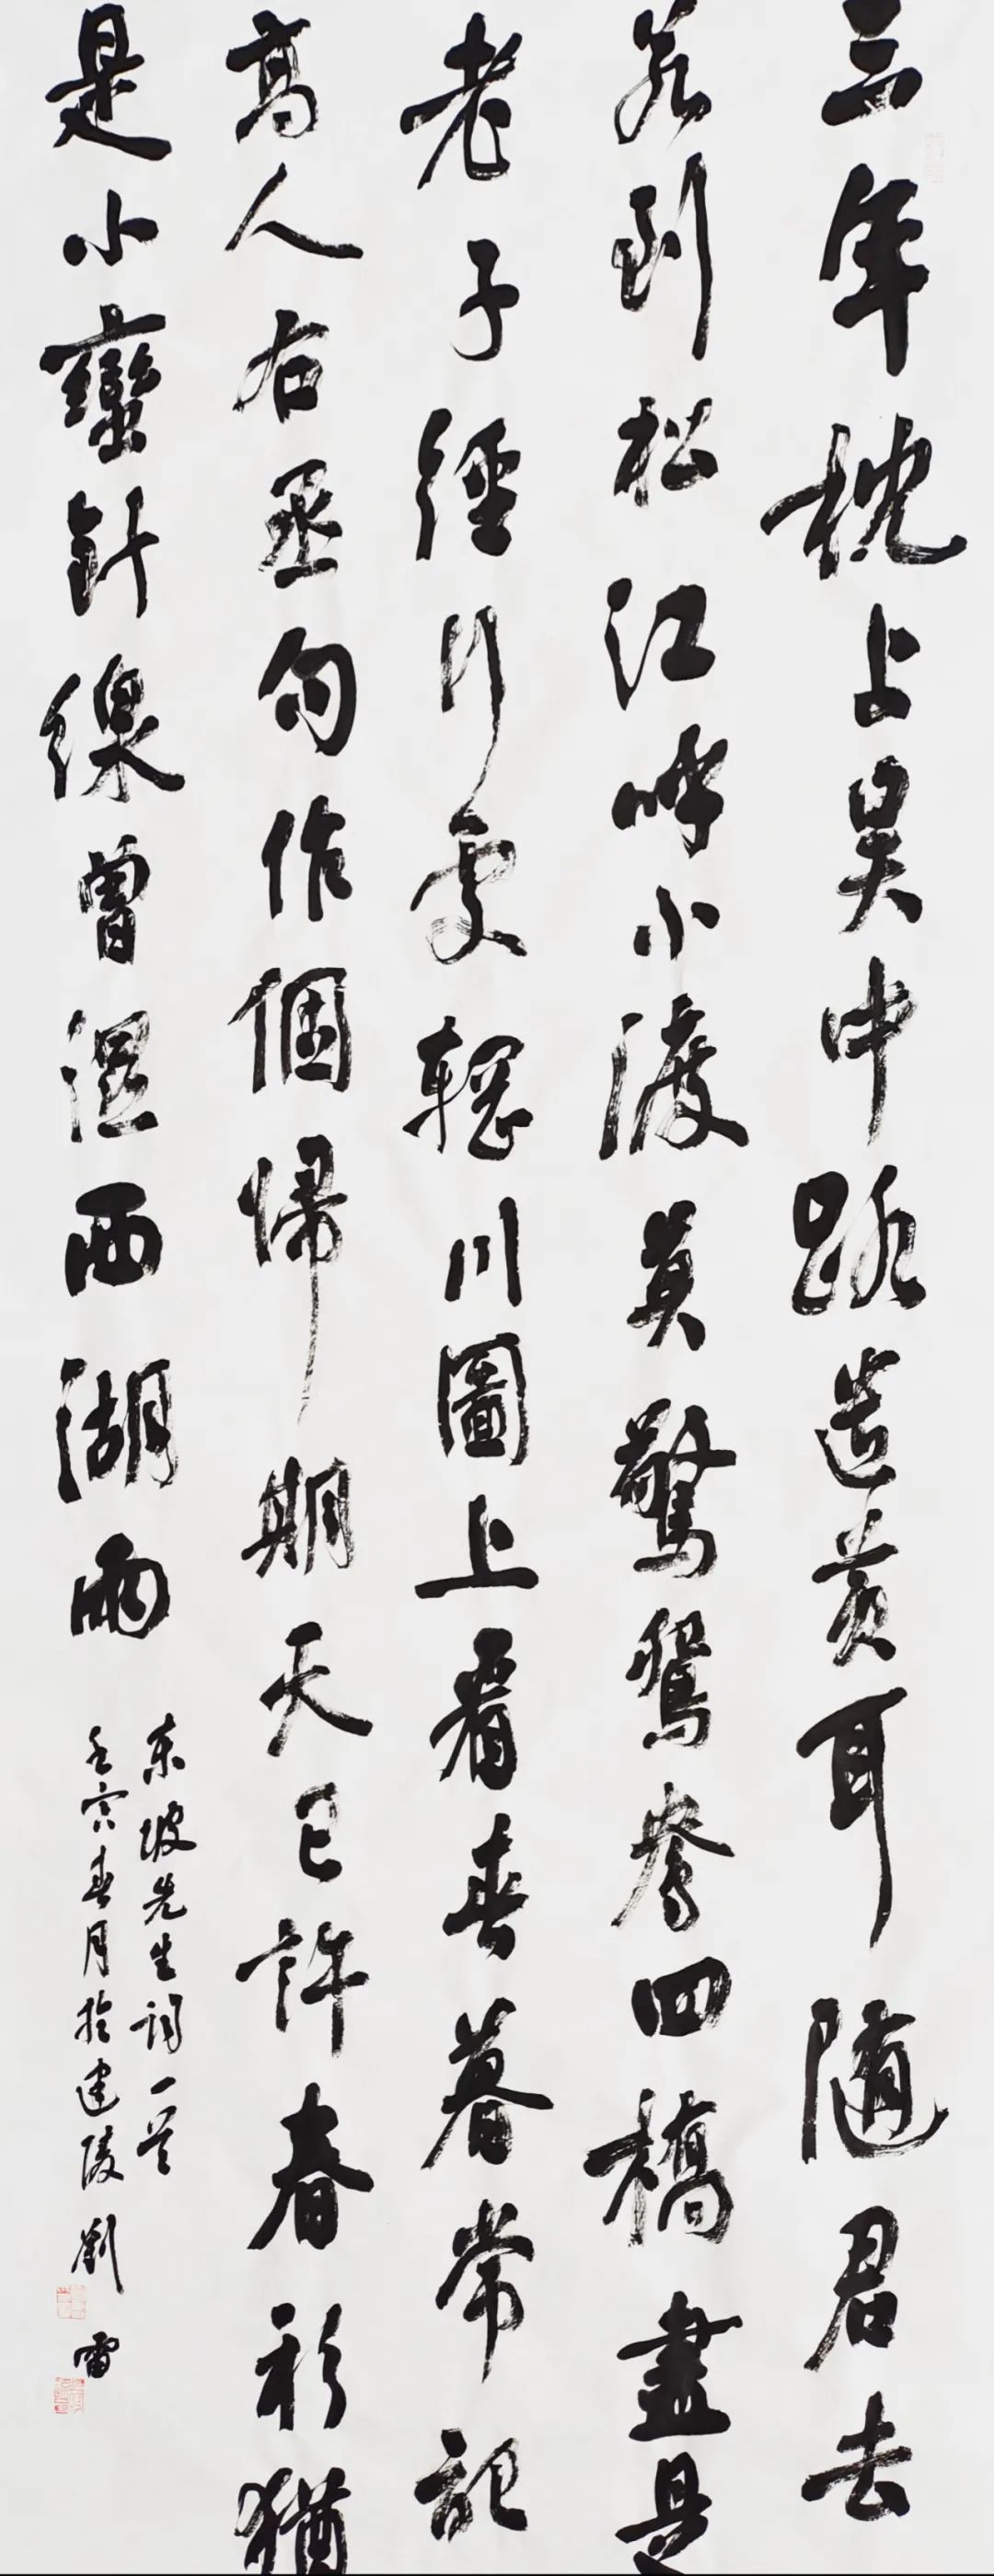 三年枕上吳中路遣黃耳隨君去
若到松江呼小渡莫驚鴛鴦四橋盡是
老子經行處輞川圖上看春暮常記
高人右丞句作個歸期天已許春衫猶
是小蠻針線曾濕西湖雨
東坡先生詞一首
壬寅春月於建陵劉雷